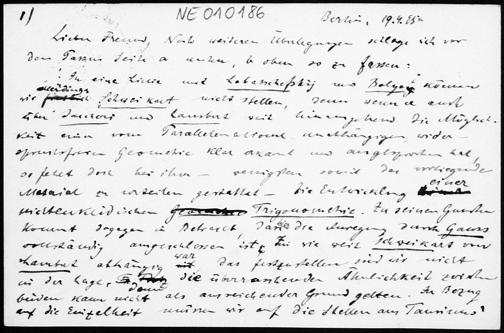 1) NE010186 Berlin, 19.4.95.
Lieber Freund, Nach weiteren Überlegungen schlage ich vor
den Passus Seite unten, oben so zu fassen:
"In eine Linie mit Lobatschefskij und Bolyai können
wir allerdings Schweikart nicht stellen, denn wenn er auch
über Saccheri und Lambert weit hinausgehend die Möglich-
keit einer vom Parallelenaxiome unabhängigen, wider-
spruchsfreien Geometrie klar erkannt und ausgesprochen hat,
so fehlt doch bei ihm – wenigstens soweit das vorliegende
Material zu urteilen gestattet – die Entwicklung einer
nichteuklidischen Trigonometrie. Zu seinen Gunsten
kommt dagegen in Betracht, dass die Anregung durch Gauss
vollständig ausgeschlossen ist. Wie weit Schweikart von
Lambert abhängig war das festzustellen sind wir nicht
in der Lage, denn die überraschende Ähnlichkeit zwischen
beiden kann nicht als ausreichender Grund gelten. In Bezug
auf die Einzelheit müssen wir auf die Stellen aus Taurinus'